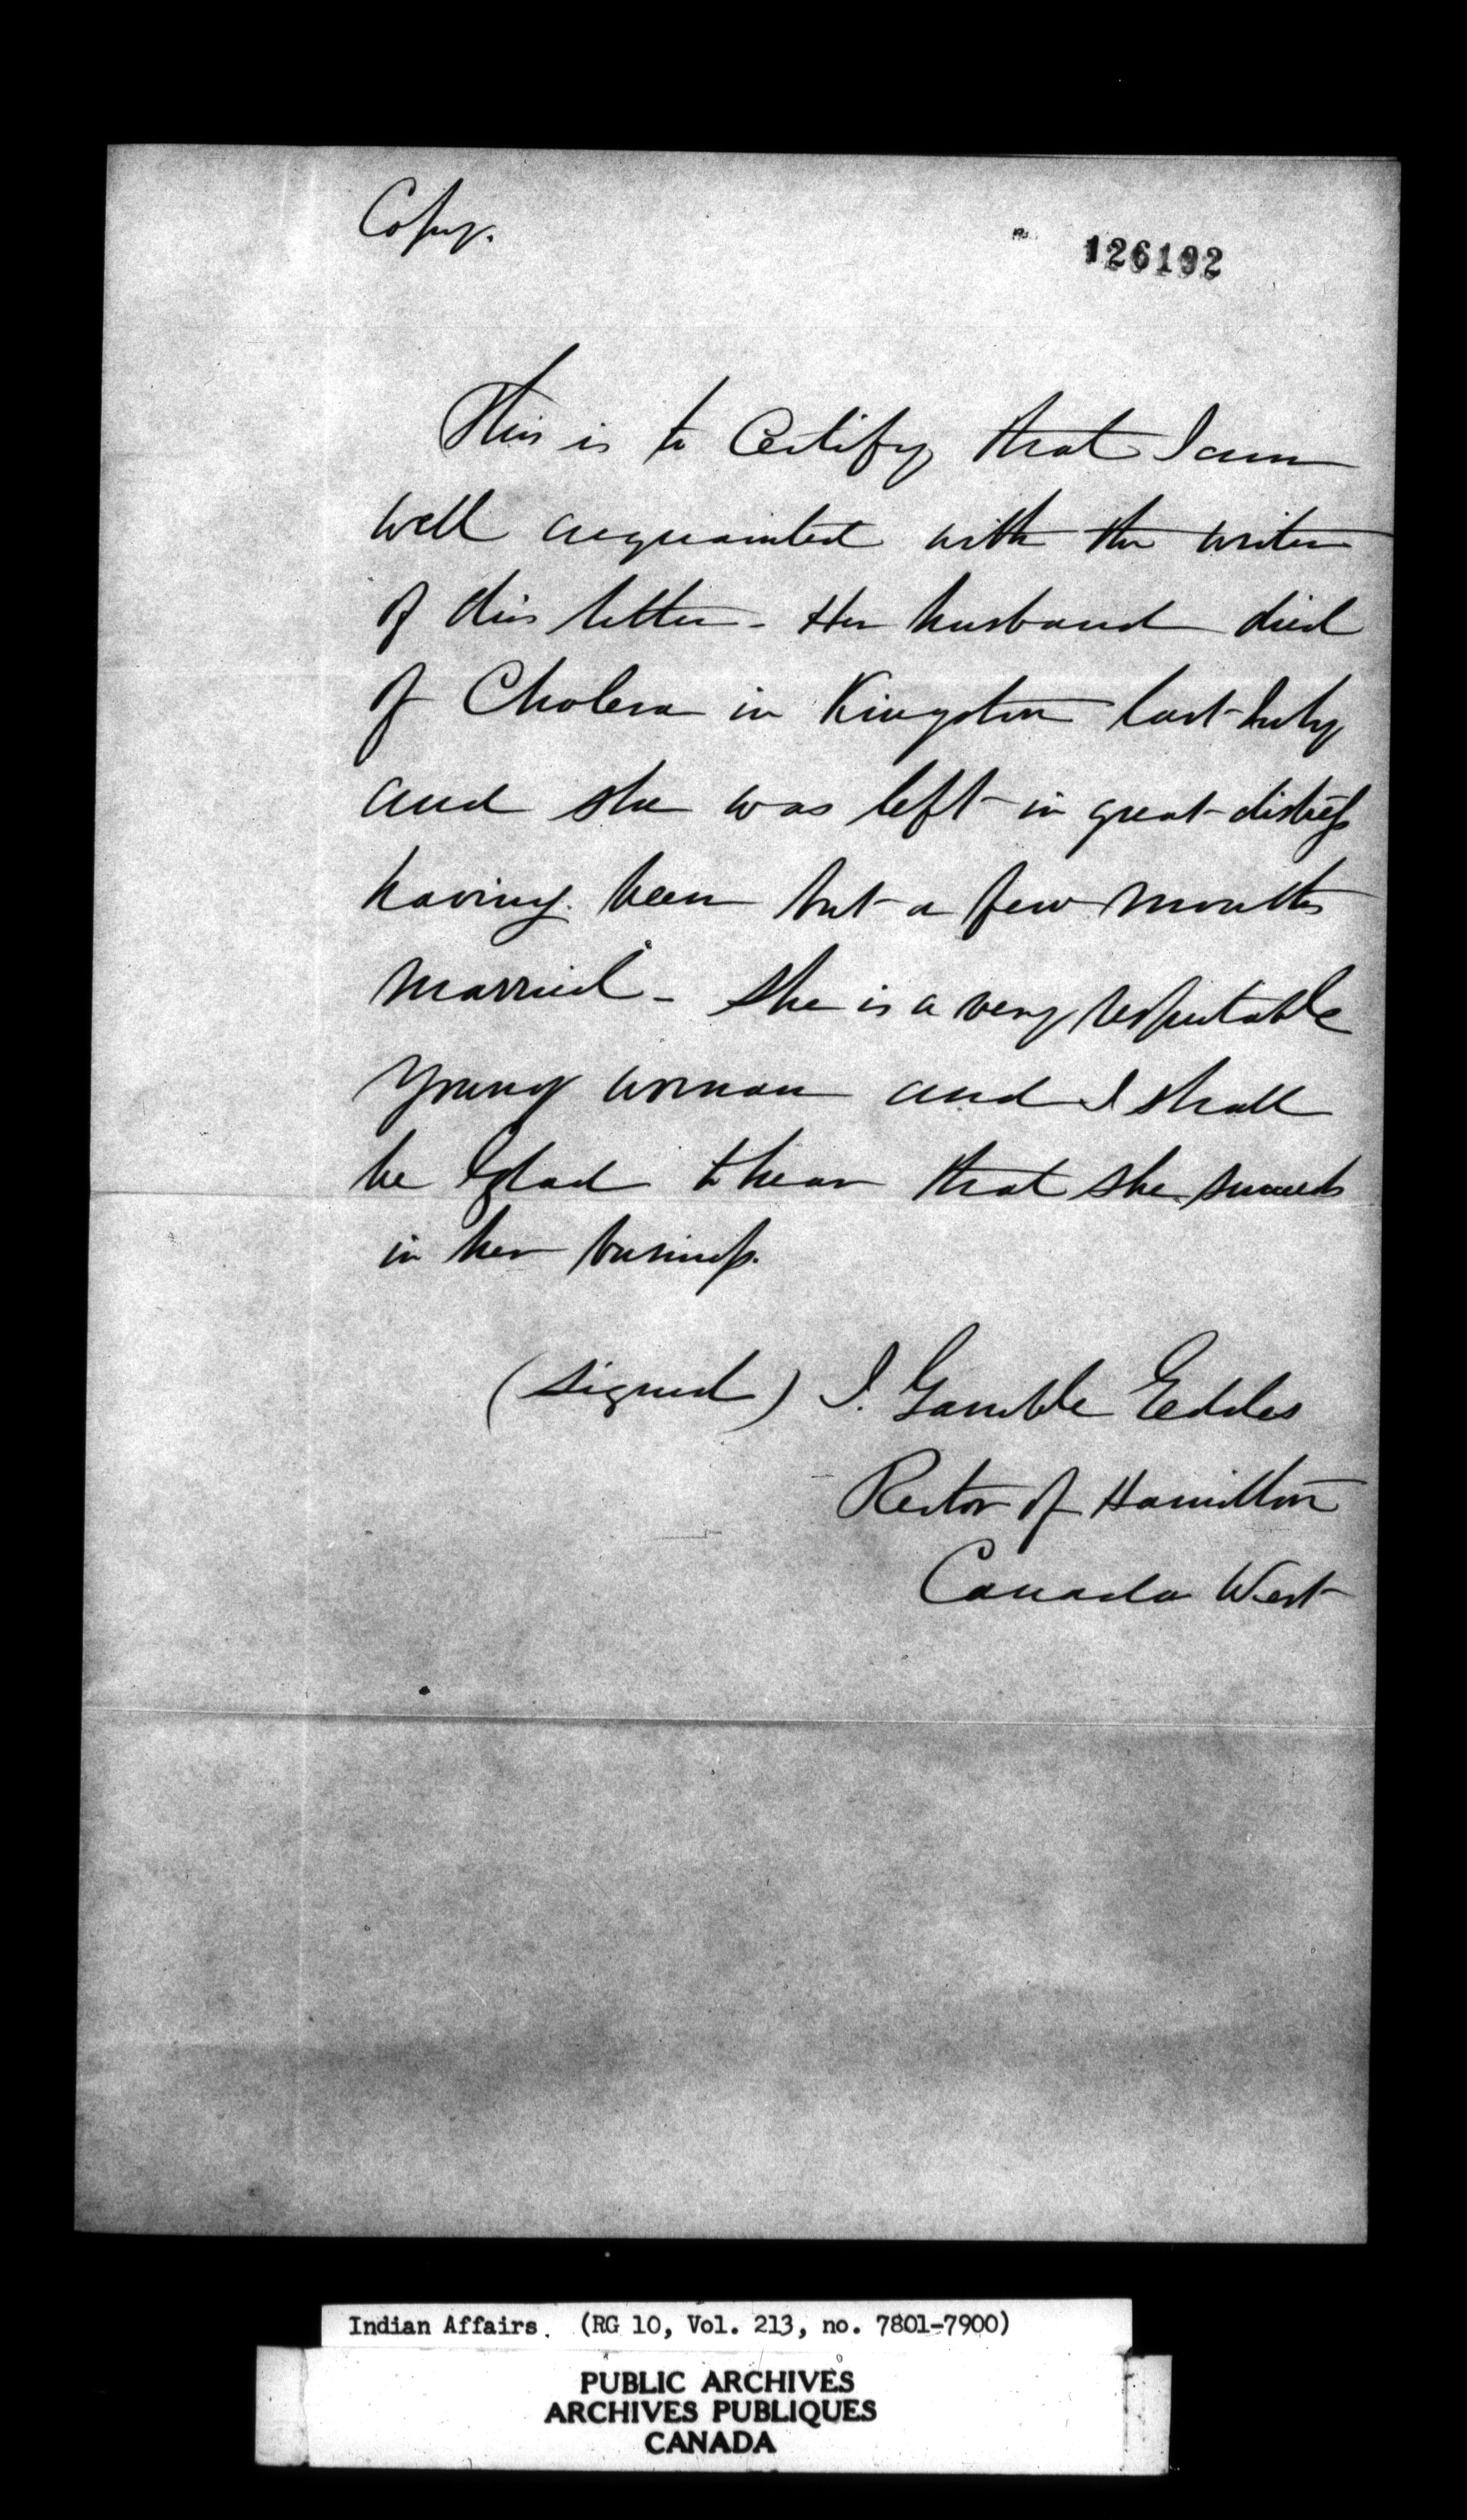 Copy.
126192
This is to Certify that I am
well acquainted with the writer
of this letter - Her husband died
of Cholera in Kingston last July
and she was left in great distress
having been but a few months
married - She is a very respectable
young woman and I shall
be glad to hear that she succeeds
in her business.
(signed) J. Gamble Geddes
Rector of Hamilton
Canada West
Indian Affairs. (RG 10, Vol. 213, no. 7801-7900)
PUBLIC ARCHIVES
ARCHIVES PUBLIQUES
CANADA